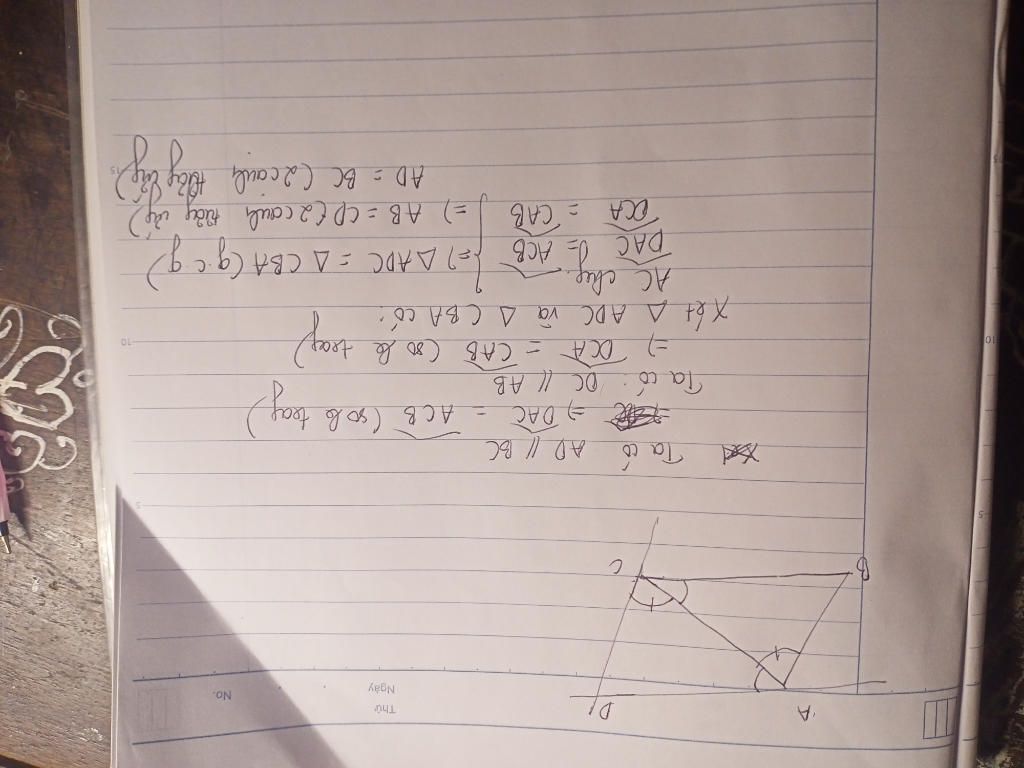 Thứ
Ngày
No.
A
D
B
C
5
Ta có AD // BC
=> DAC = ACB (so le trog)
Ta có: DC // AB
=> DCA = CAB (so le trog)
10
Xét Δ ADC và Δ CBA có:
AC chug
DAC = ACB } => Δ ADC = Δ CBA (g.c.g)
DCA = CAB => AB = CD (2 cạnh tương ứng)
AD = BC (2 cạnh tương ứng)
15